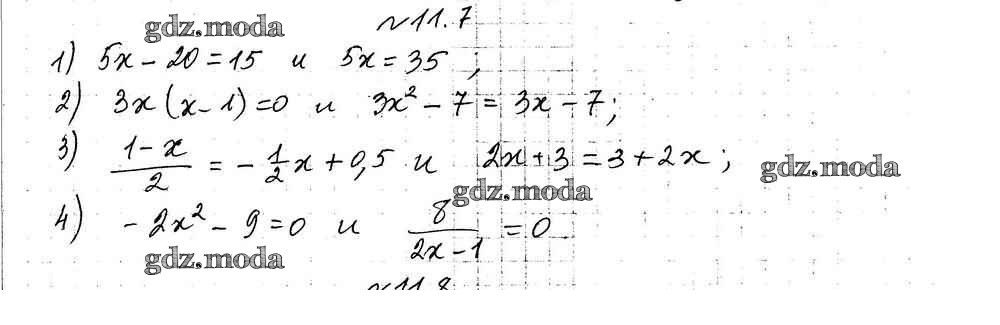 №11.7
gdz.moda
1) 5x - 20 = 15 и 5x = 35;
2) 3x(x - 1) = 0 и 3x² - 7 = 3x - 7;
3) (1-x)/2 = - 1/2 x + 0,5 и 2x + 3 = 3 + 2x;
gdz.moda
gdz.moda
4) - 2x² - 9 = 0 и 8/(2x - 1) = 0
gdz.moda
№11.8